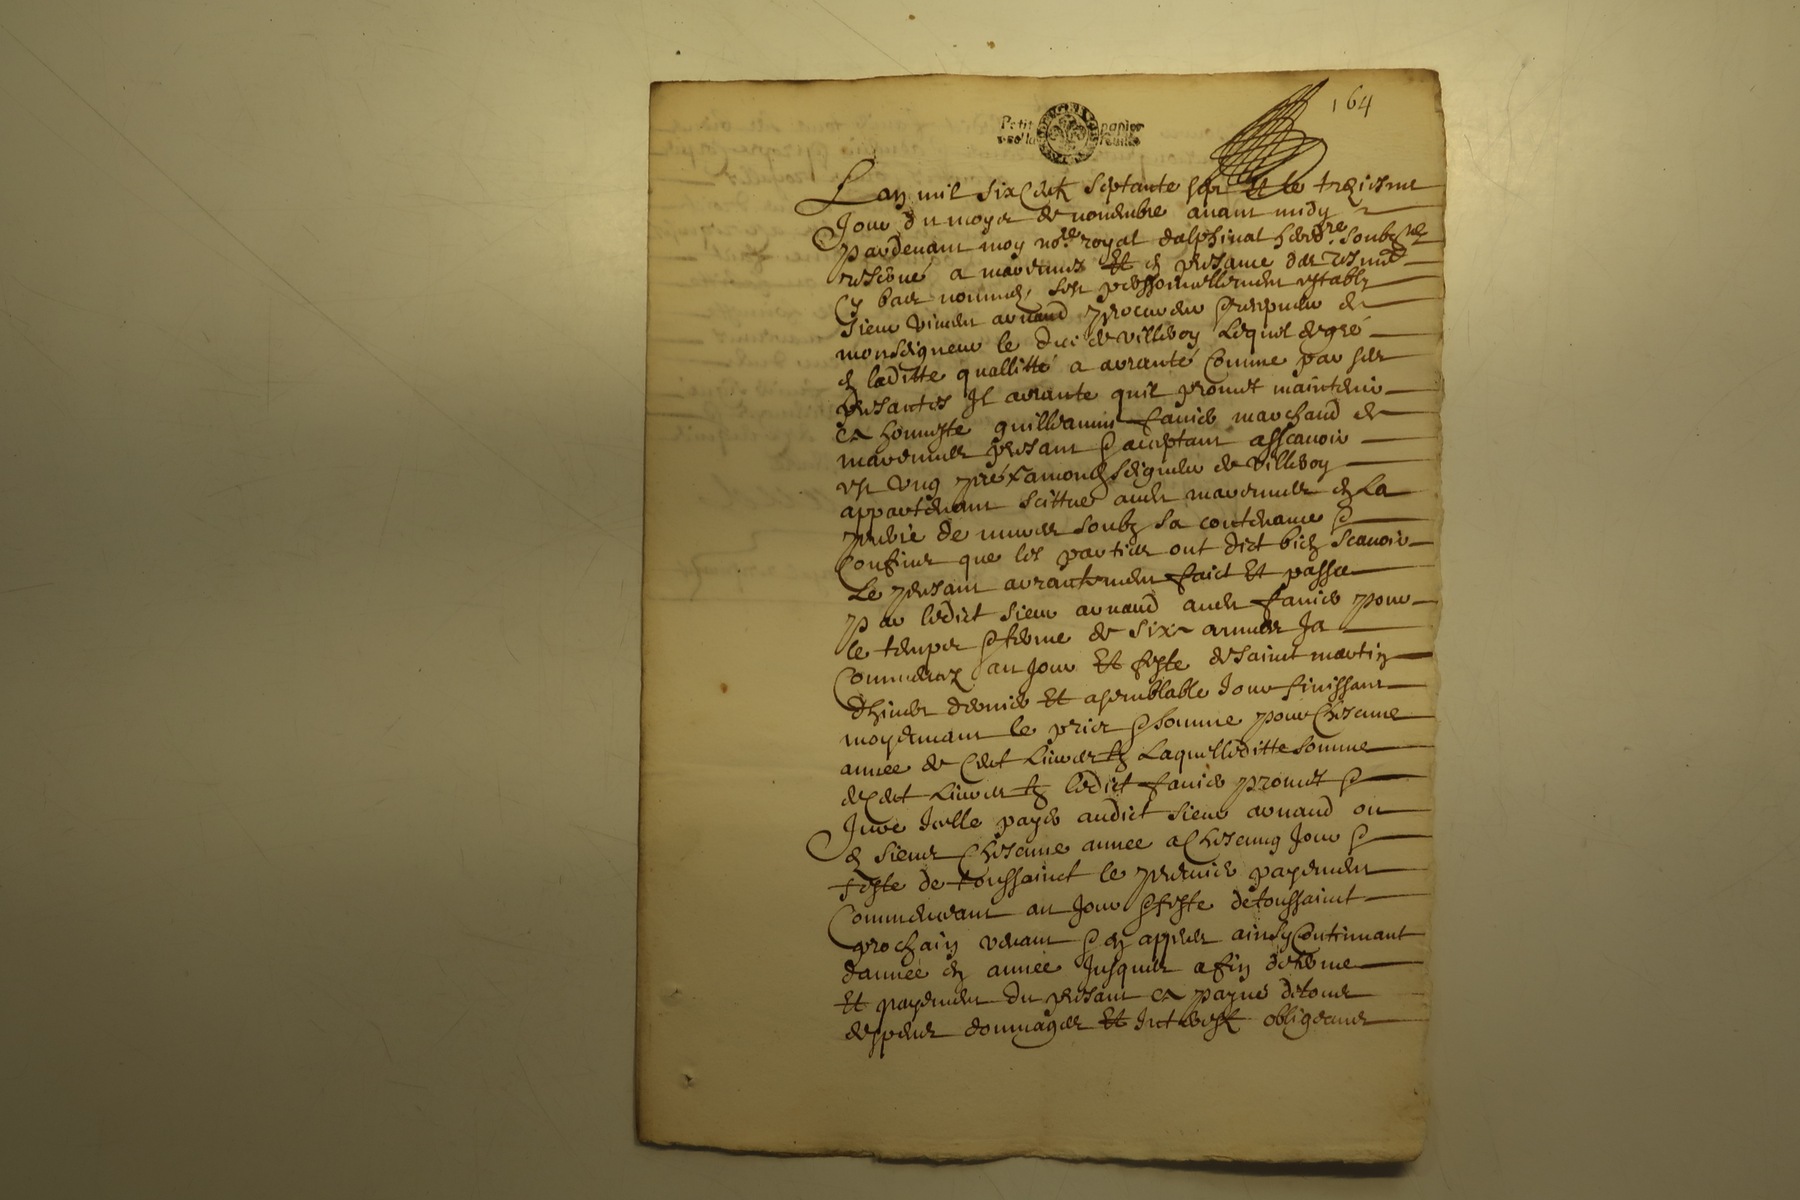 164
Petit papier
Lan mil six cent septante sept et le treiziesme
Jour du moys de novembre avant midy
pardevant moy no.re royal dalphinal hered.re soubz.né
reservé a marennes et en presance des tesmoins
Cy bas nommes, sest personnellement estably
sieur vincent arnaud procureur de
monseigneur le duc de villeroy Lequel de gré
en laditte quallitté a arranté Comme par ses
presantes Il arrante quil promet maintenir
a honneste guilleaume favier marchand de
marennes presant acceptant asscavoir
est ung pré a mondseigneur de villeroy
appartenant scittué audit marennes en La
prerie de soubz sa contenance
Confins que les parties ont dict bien scavoir
Le presant arrantement faict et passé
par ledict sieur arnaud audit favier pour
le temps terme de six annees Ja
Commencé au jour et feste de saint martin
dhiver dernier et a semblable Jour finissant
moyenant le prix somme pour chescune
année de Cent Livres tz Laquelleditte somme
de Cent Livres tz ledict favier promet
Jure Icelle payer audict sieur arnaud ou
chescune annee a chescung Jour
feste de toussainct le premier payement
Commencant au Jour feste de toussaint
prochain venant en appres ainsy Continuant
dannée en année Jusques a fin de terme
et payement du presant a payne de tous
despens dommages et Interest obligeant